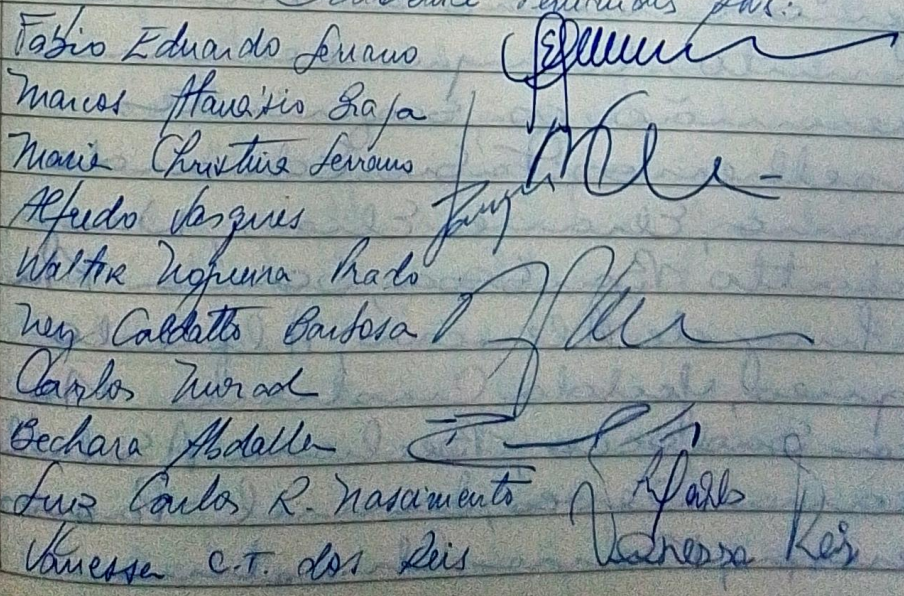 Fabio Eduardo Serrano
Marcos Atanásio Braga
Maria Christina Serrano
Alfredo Vasques
Walter Nogueira Prado
Ney Caldatto Barbosa
Carlos Murad
Bechara Abdalla
Luiz Carlos R. Nascimento
Vanessa C.T. dos Reis Vanessa Reis